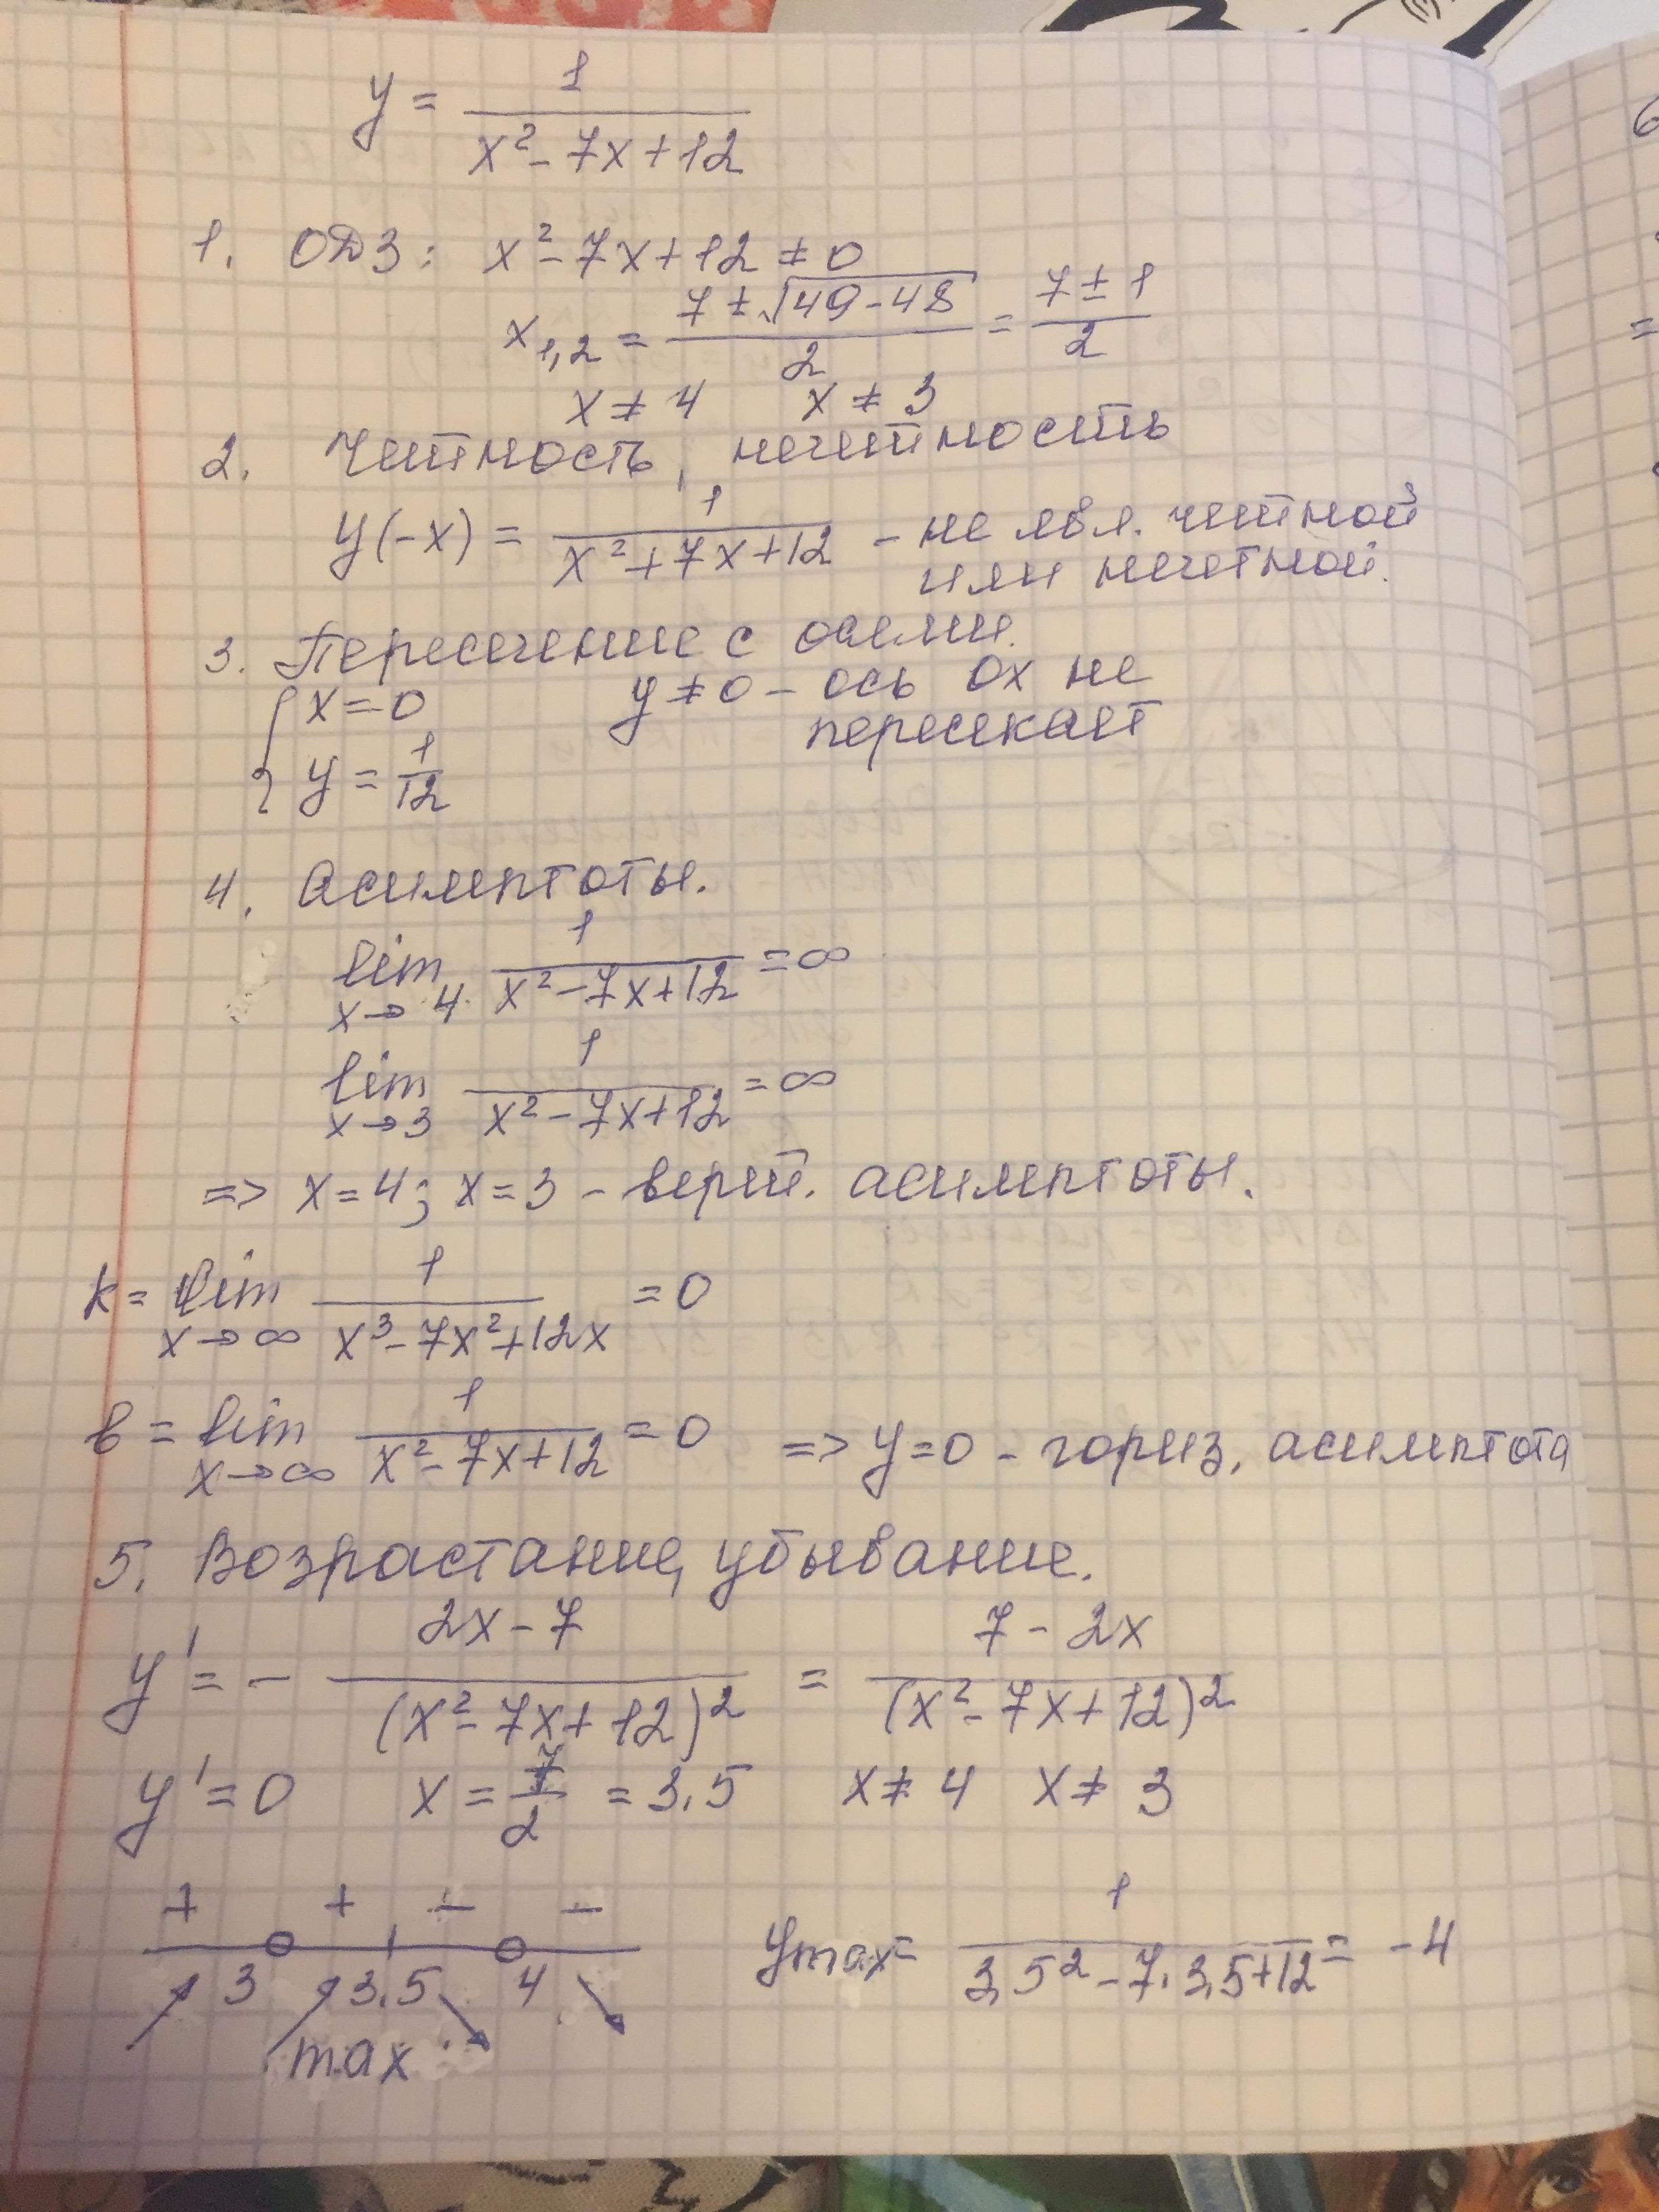 y = 1/(x² - 7x + 12)
1. ОДЗ: x² - 7x + 12 ≠ 0
x₁,₂ = (7 ± √(49 - 48))/2 = (7 ± 1)/2
x ≠ 4 x ≠ 3
2. Четность, нечетность
y(-x) = 1/(x² + 7x + 12) - не явл. четной
или нечетной.
3. Пересечение с осями.
{ x = 0 y ≠ 0 - ось Ox не
пересекает
y = 1/12
4. Асимптоты.
lim x→4 1/(x² - 7x + 12) = ∞
lim x→3 1/(x² - 7x + 12) = ∞
=> x = 4; x = 3 - верт. асимптоты.
k = lim x→∞ 1/(x³ - 7x² + 12x) = 0
b = lim x→∞ 1/(x² - 7x + 12) = 0 => y = 0 - гориз. асимптота
5. Возрастание, убывание.
y' = - (2x - 7)/(x² - 7x + 12)² = (7 - 2x)/(x² - 7x + 12)²
y' = 0 x = 7/2 = 3,5 x ≠ 4 x ≠ 3
+ + - -
3 3,5 4
max
ymax = 1/(3,5² - 7·3,5 + 12) = -4